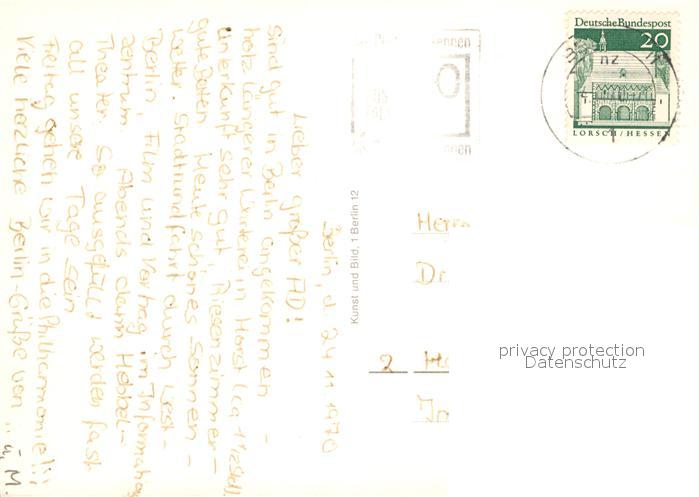 Berlin, d. 24.11.1970
Lieber großer AD!
Sind gut in Berlin angekommen –
trotz längerer Warterei in Horst (ca 1 1/2 Std.)
Unterkunft sehr gut, Riesenzimmer –
gute Betten. Heute schönes Sonnen –
wetter. Stadtrundfahrt durch West-
Berlin, Film und Vortrag im Informations
zentrum. Abends dann Hebbel-
Theater. So ausgefüllt werden fast
all unsere Tage sein.
Freitag gehen wir in die Philharmonie!!!
Viele herzliche Berlin-Grüße von ..
u. M.
Kunst und Bild, 1 Berlin 12
Deutsche Bundespost
20
LORSCH/HESSEN
Herrn
Dr.
2 Ha
privacy protection
Datenschutz